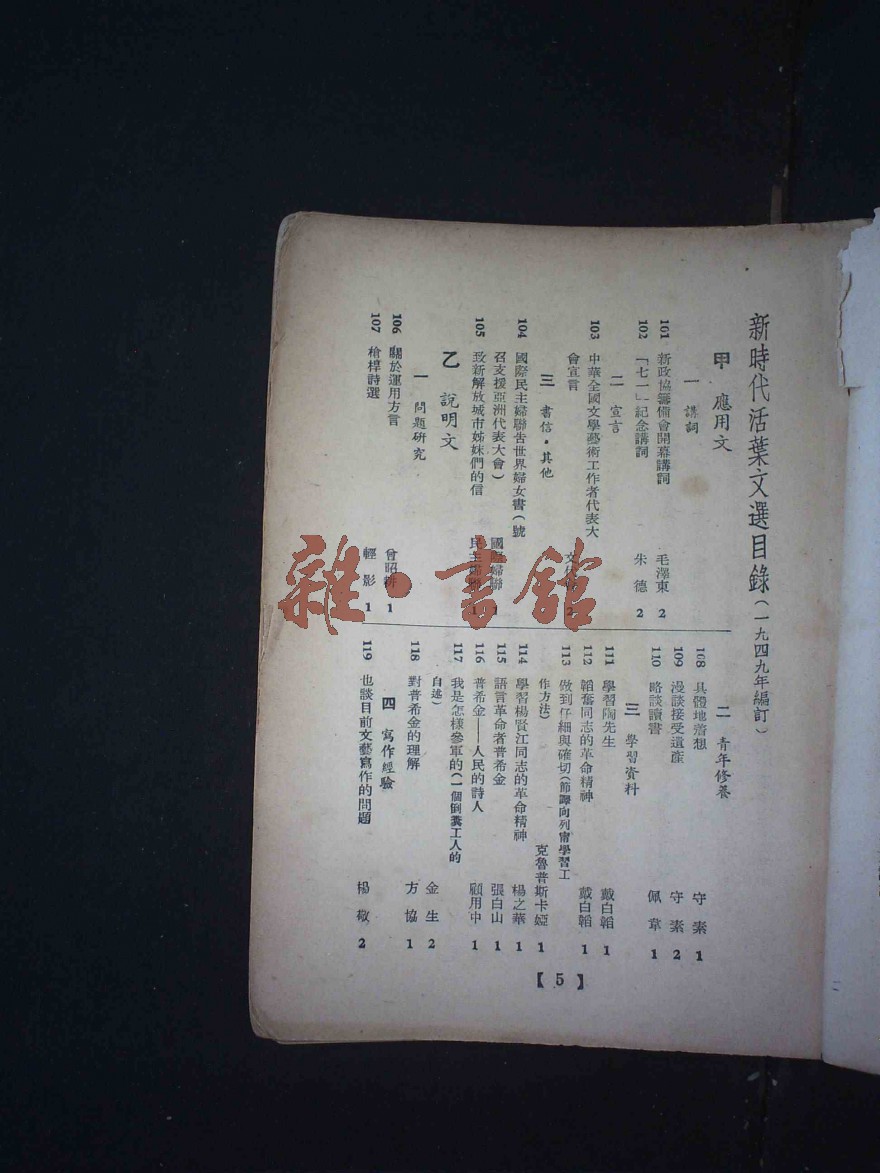 新時代活葉文選目錄(一九四九年編訂)
甲 應用文
一 講詞
101 新政協籌備會開幕講詞 毛澤東 2
102 「七一」紀念講詞 朱德 2
二 宣言
103 中華全國文學藝術工作者代表大
會宣言 2
三 書信·其他
104 國際民主婦聯告世界婦女書(號
召支援亞洲代表大會) 國際婦聯
105 致新解放城市姊妹們的信 民主婦聯
乙 說明文
一 問題研究
106 關於運用方言 曾昭耕 1
107 槍桿詩選 輕影 1
二 青年修養
108 具體地着想 守素 1
109 漫談接受遺產 守素 2
110 略談讀書 佩韋 1
三 學習資料
111 學習陶先生 戴白韜 1
112 韜奮同志的革命精神 戴白韜 1
113 做到仔細與確切(節譯向列甯學習工
作方法) 克魯普斯卡婭 1
114 學習楊賢江同志的革命精神 楊之華 1
115 語言革命者普希金 張白山 1
116 普希金——人民的詩人 顧用中 1
117 我是怎樣參軍的(一個倒糞工人的
自述) 金生 2
118 對普希金的理解 方協 1
四 寫作經驗
119 也談目前文藝寫作的問題 楊敬 2
【5】
雜·書館